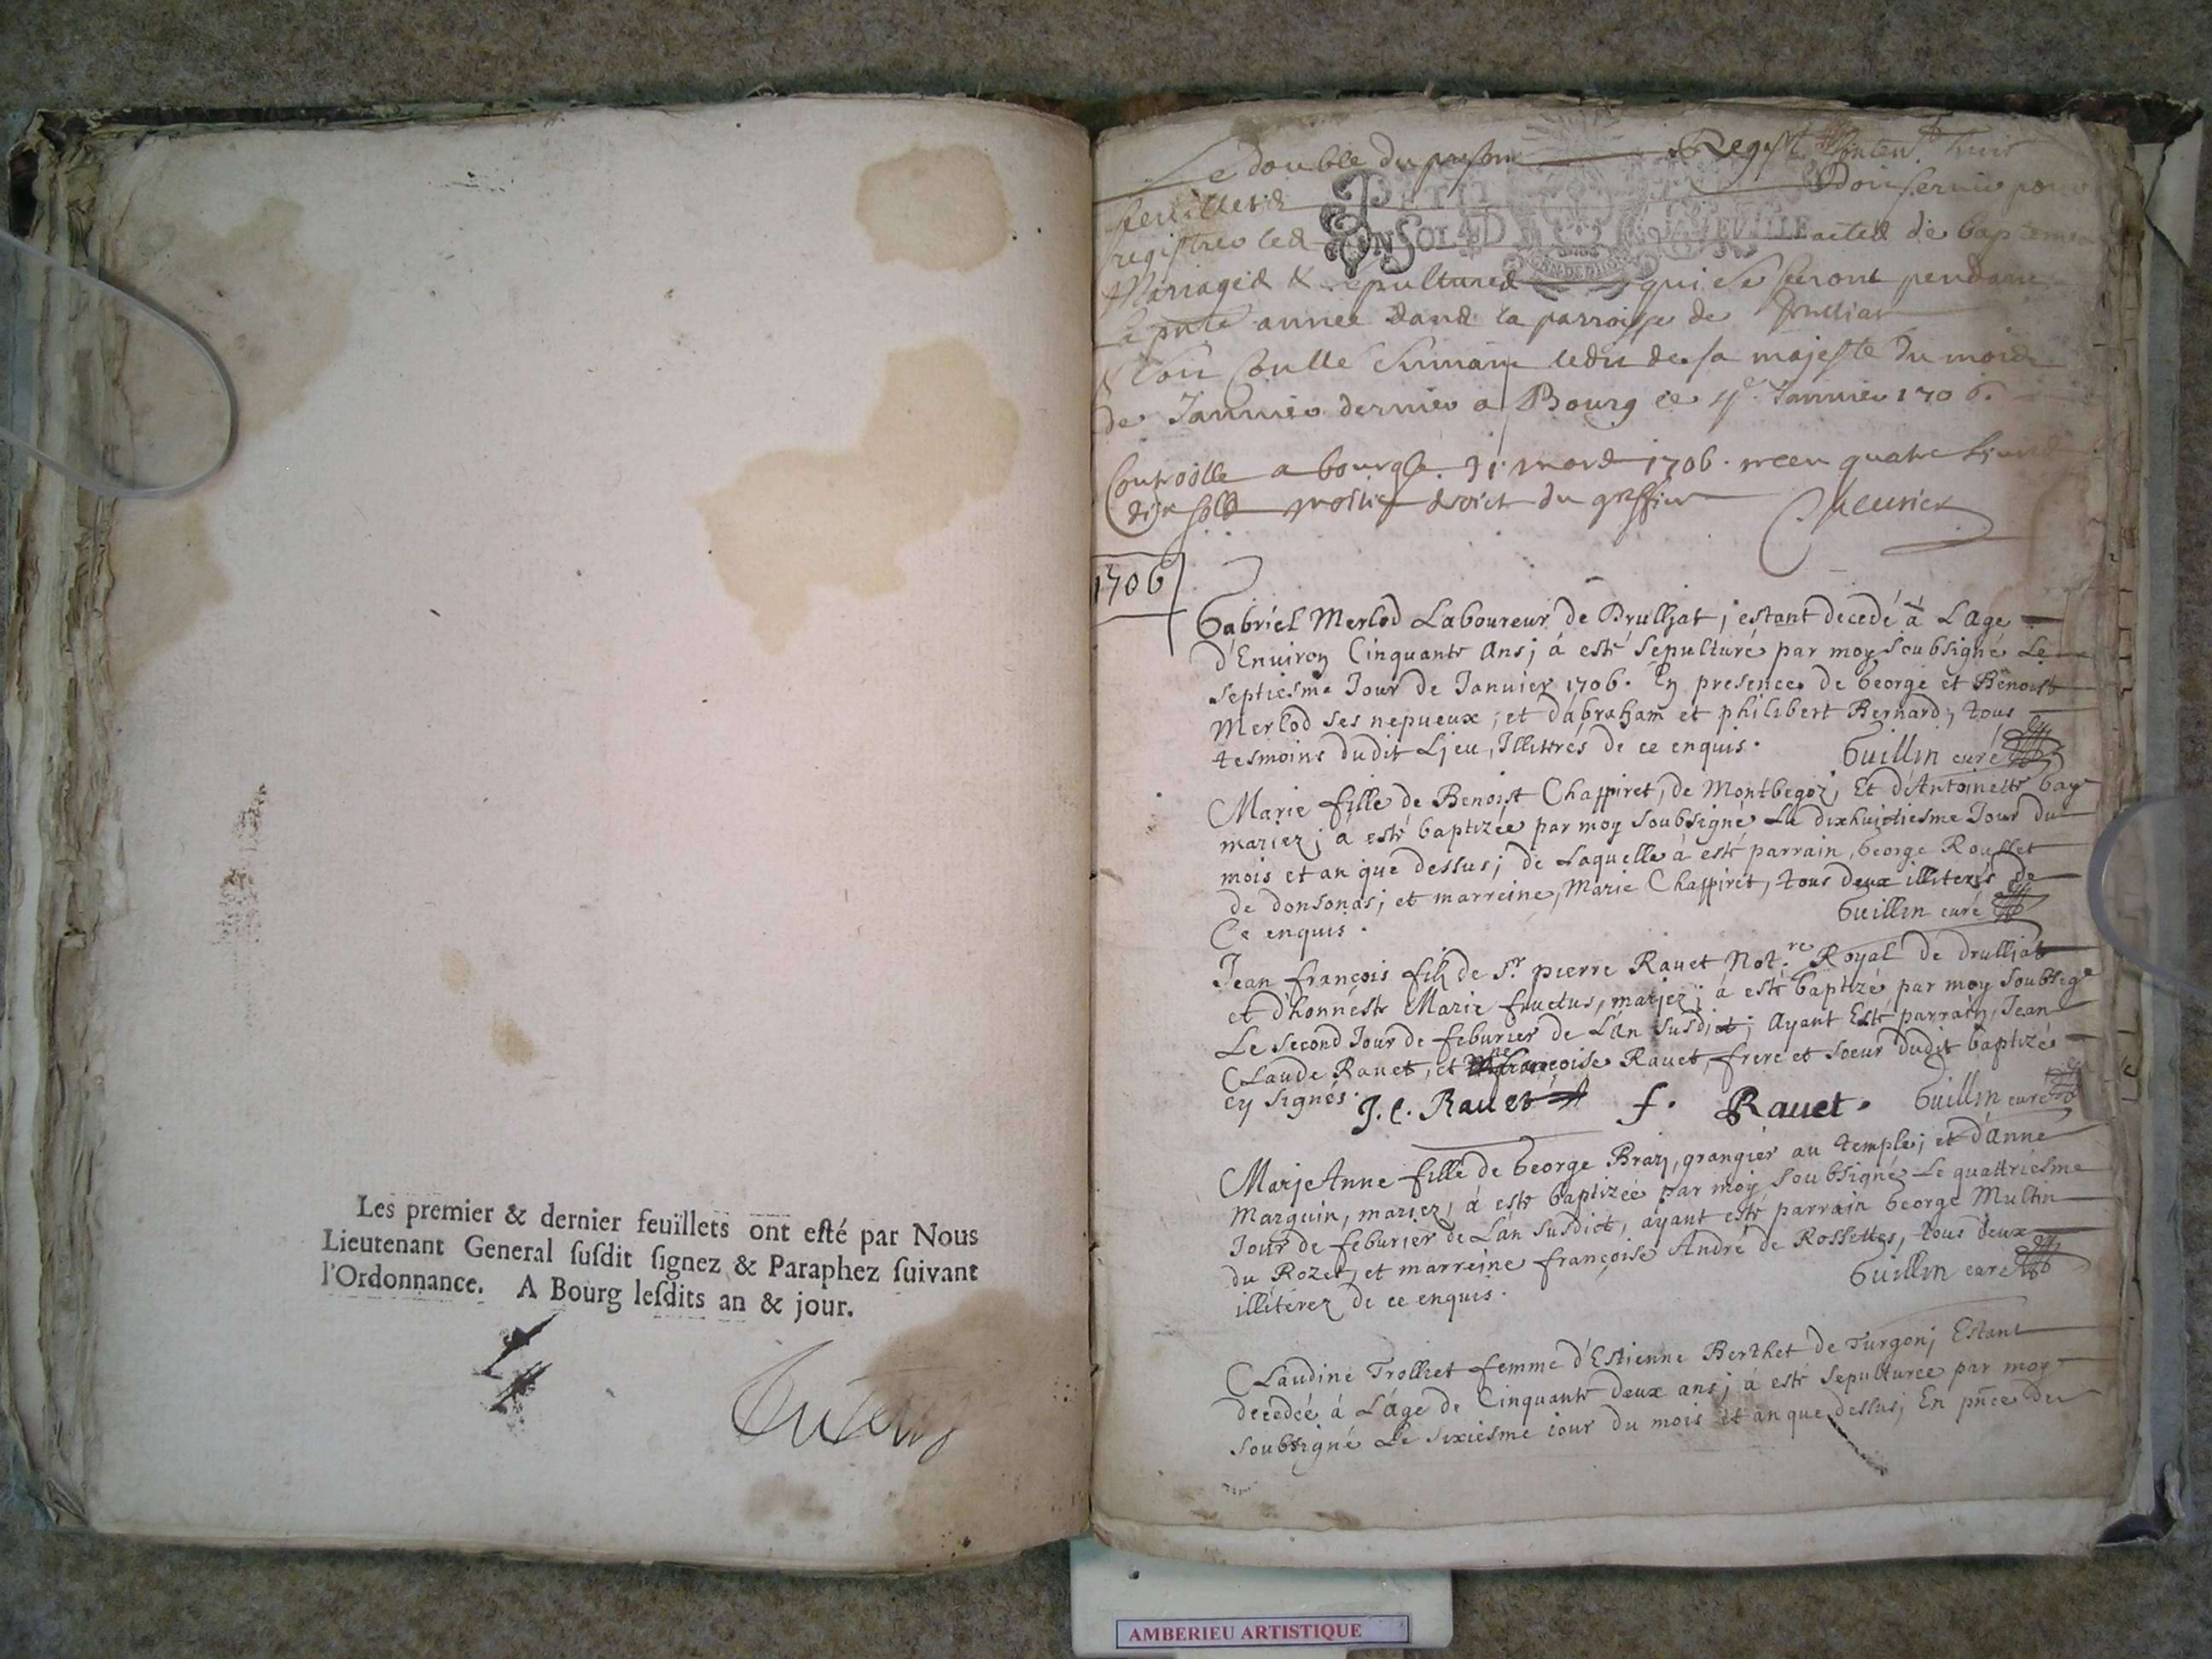 Les premier & dernier feuillets ont esté par Nous
Lieutenant General susdit signez & Paraphez suivant
l'Ordonnance. A Bourg lesdits an & jour.
Le double du present Regist content huit
feuilletz Doit servir pour
PETIT
registrer led actes de baptemes
UN SOL 4 D
Mariages & sepultures qui se feront pendant
la pnte annee dans la parroisse de Drulliat
de Januier dernier a Bourg le Januier 1706.
Controlle a bourg le 31 mars 1706. receu quatre liures
dix sols moitié droict du greffier
1706
Gabriel Merlod Laboureur de Drulljat, estant decedé à L'age
d'Enuiron Cinquante Ans; à esté sepulturé par moy soubsigné Le
septiesme Jour de Januier 1706. En presence de George et Benoist
Merlod ses nepueux; et d'abraham et philibert Bernard, tous
tesmoins dudit Ljeu, Illitérés de ce enquis. Guillin curé
Marie fille de Benoist Chappiret, de Montbegoz; Et d'Antoinette Gay
mariez; à esté baptizée par moy soubsigné Le dixhuictiesme Jour du
mois et an que dessus; de Laquelle à esté parrain, George Rousset
de donsonas; et marreine, Marie Chappiret, tous deux illiterés de
Ce enquis. Guillin curé
Jean françois filz de Sr. pierre Rauet Not.re Royal de drulljat
et d'honneste Marie fructus, mariez; à esté baptizé par moy soubsigé
Le second Jour de feburier de L'an susdict; Ayant Esté parrain, Jean
Claude Rauet, et françoise Rauet, frere et soeur dudit baptizé
cy signés. J. C. Rauet f. Rauet. Guillin curé
MarjeAnne fille de George Brazj, grangier au temple; et d'Anne
Marguin, mariez, à esté baptizée par moy soubsigné Le quattriesme
Jour de feburier de L'an susdict, ayant esté parrain George Multin
du Rozet, et marreine françoise André de Rossettes, tous deux
illitérez de ce enquis. Guillin curé
Claudine Trolliet femme d'Estienne Berthet de Turgon; Estant
decedée à L'age de Cinquante deux ans; à esté sepulturée par moy
soubsigné Le sixiesme iour du mois et an que dessus; En pnce de
AMBERIEU ARTISTIQUE